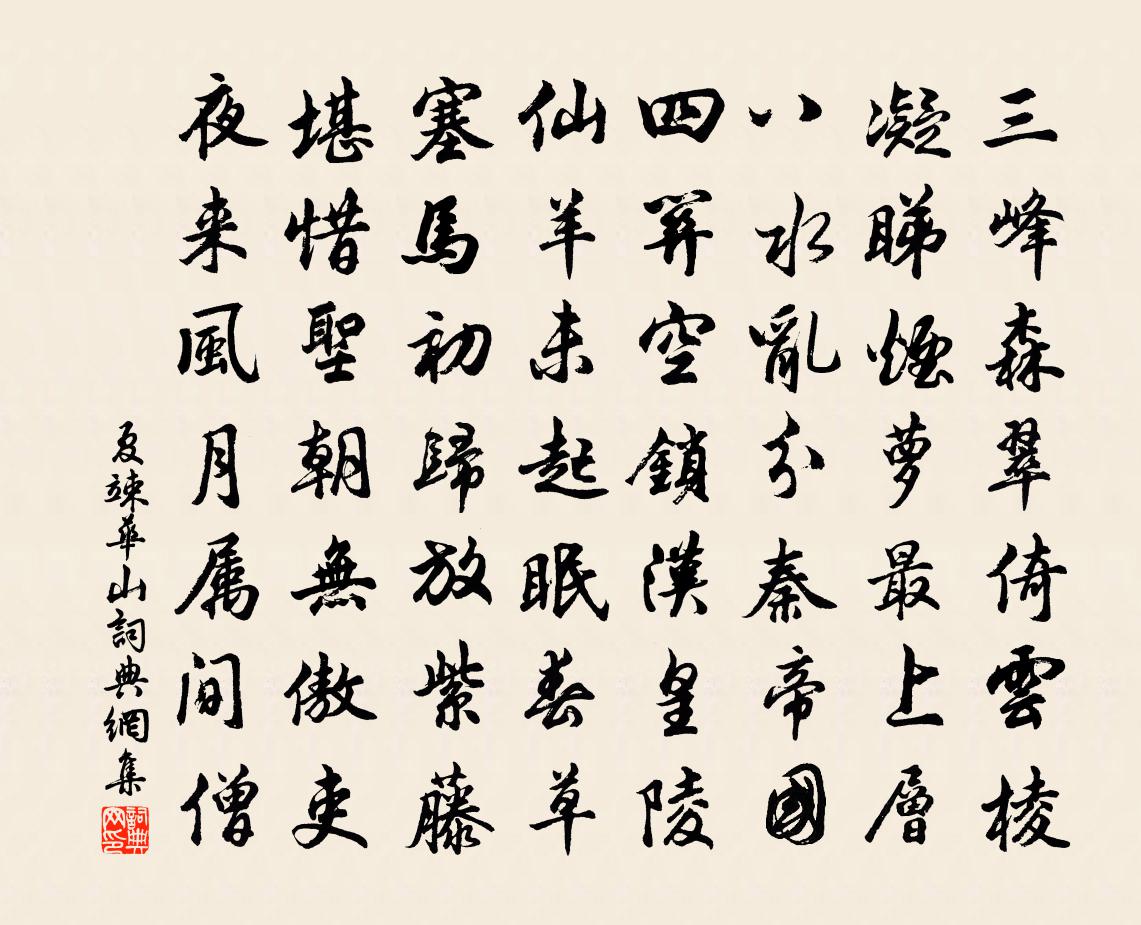 三峰森翠倚雲棱
凝睇煙夢最上層
八水亂分秦帝國
四關空鎖漢皇陵
仙羊未起眠春草
塞馬初歸放紫藤
堪惜聖朝無傲吏
夜来風月属間僧
夏竦華山詞典網集
詞典
网印